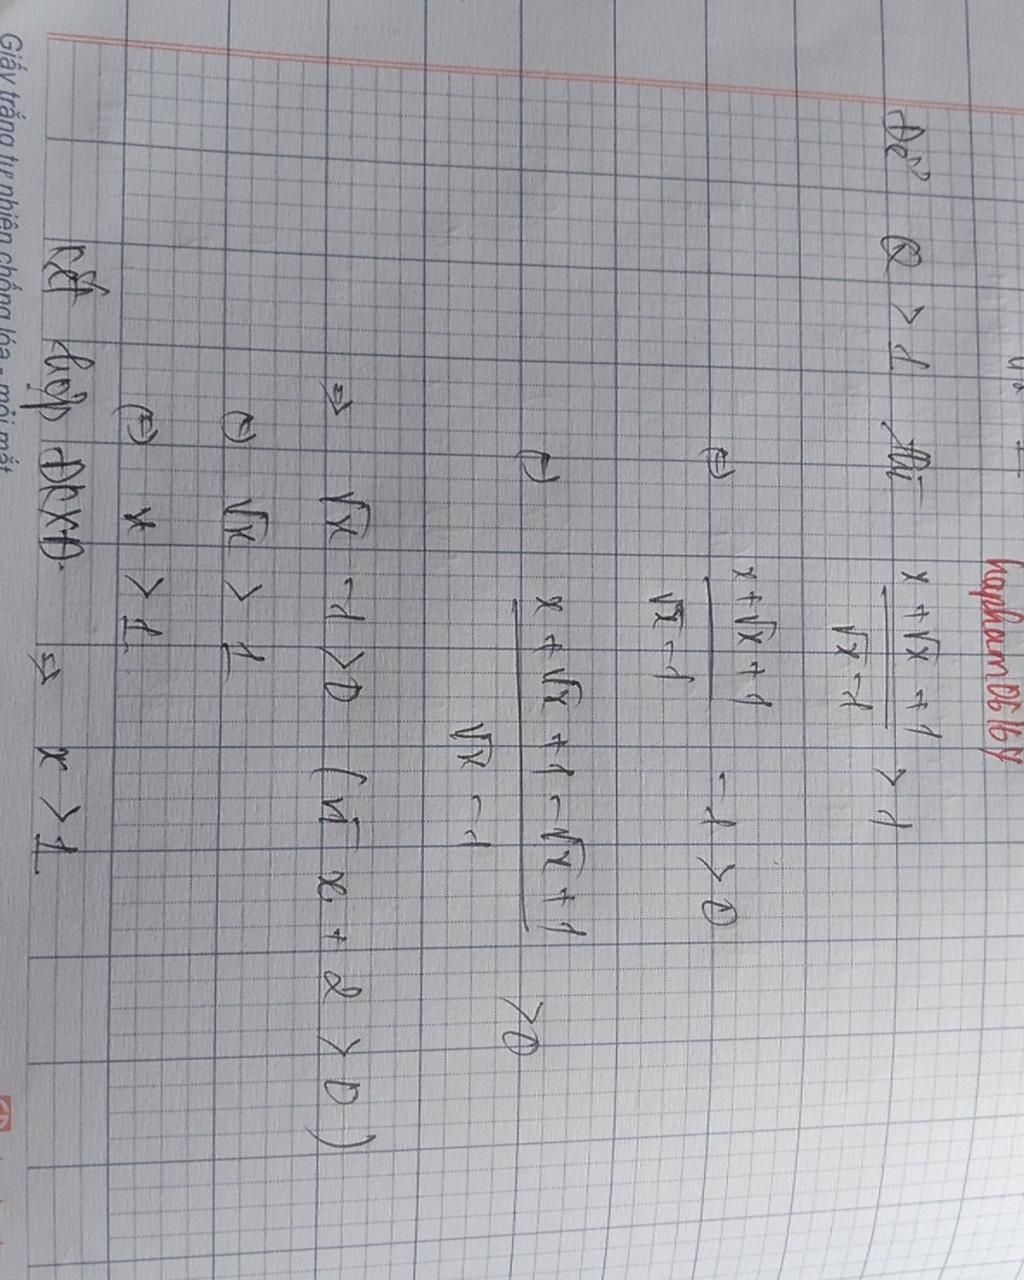 hapham0616y
Để Q > 1 thì x + √x + 1 / √x - 1 > 1
⇔ x + √x + 1 / √x - 1 - 1 > 0
⇔ x + √x + 1 - √x + 1 / √x - 1 > 0
⇒ √x - 1 > 0 (vì x + 2 > 0)
⇔ √x > 1
⇔ x > 1
kết hợp ĐKXĐ. ⇒ x > 1
Giấy trắng tự nhiên chống lóa - mỏi mắt